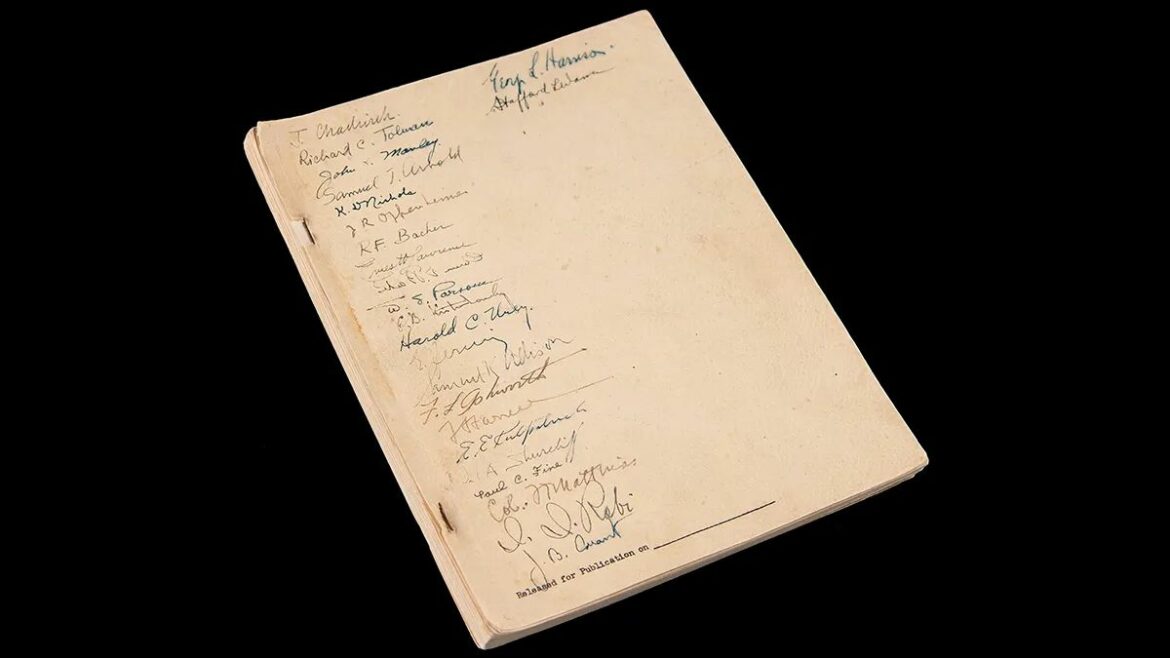 Georg L. Harrison
Stafford Warren
J. Chadwick.
Richard C. Tolman
John Manley.
Samuel T. Arnold
K D Nichols
J R Oppenheimer
R.F. Bacher
Ernest Lawrence
W. S. Parsons
Harold C. Urey.
E. Fermi
Samuel K Allison
F. L. Ashworth
E. E Kirkpatrick
A Shurcliff
Paul C. Fine
Col. Matthias
I. I. Rabi
J. B. Conant
Released for Publication on